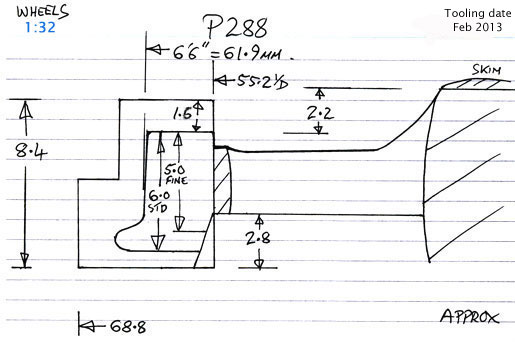 WHEELS
1:32
P288
Tooling date
Feb 2013
6'6" = 61.9 MM.
55.2 I/D
SKIM
1.6
2.2
8.4
5.0
FINE
6.0
STD
2.8
68.8
APPROX